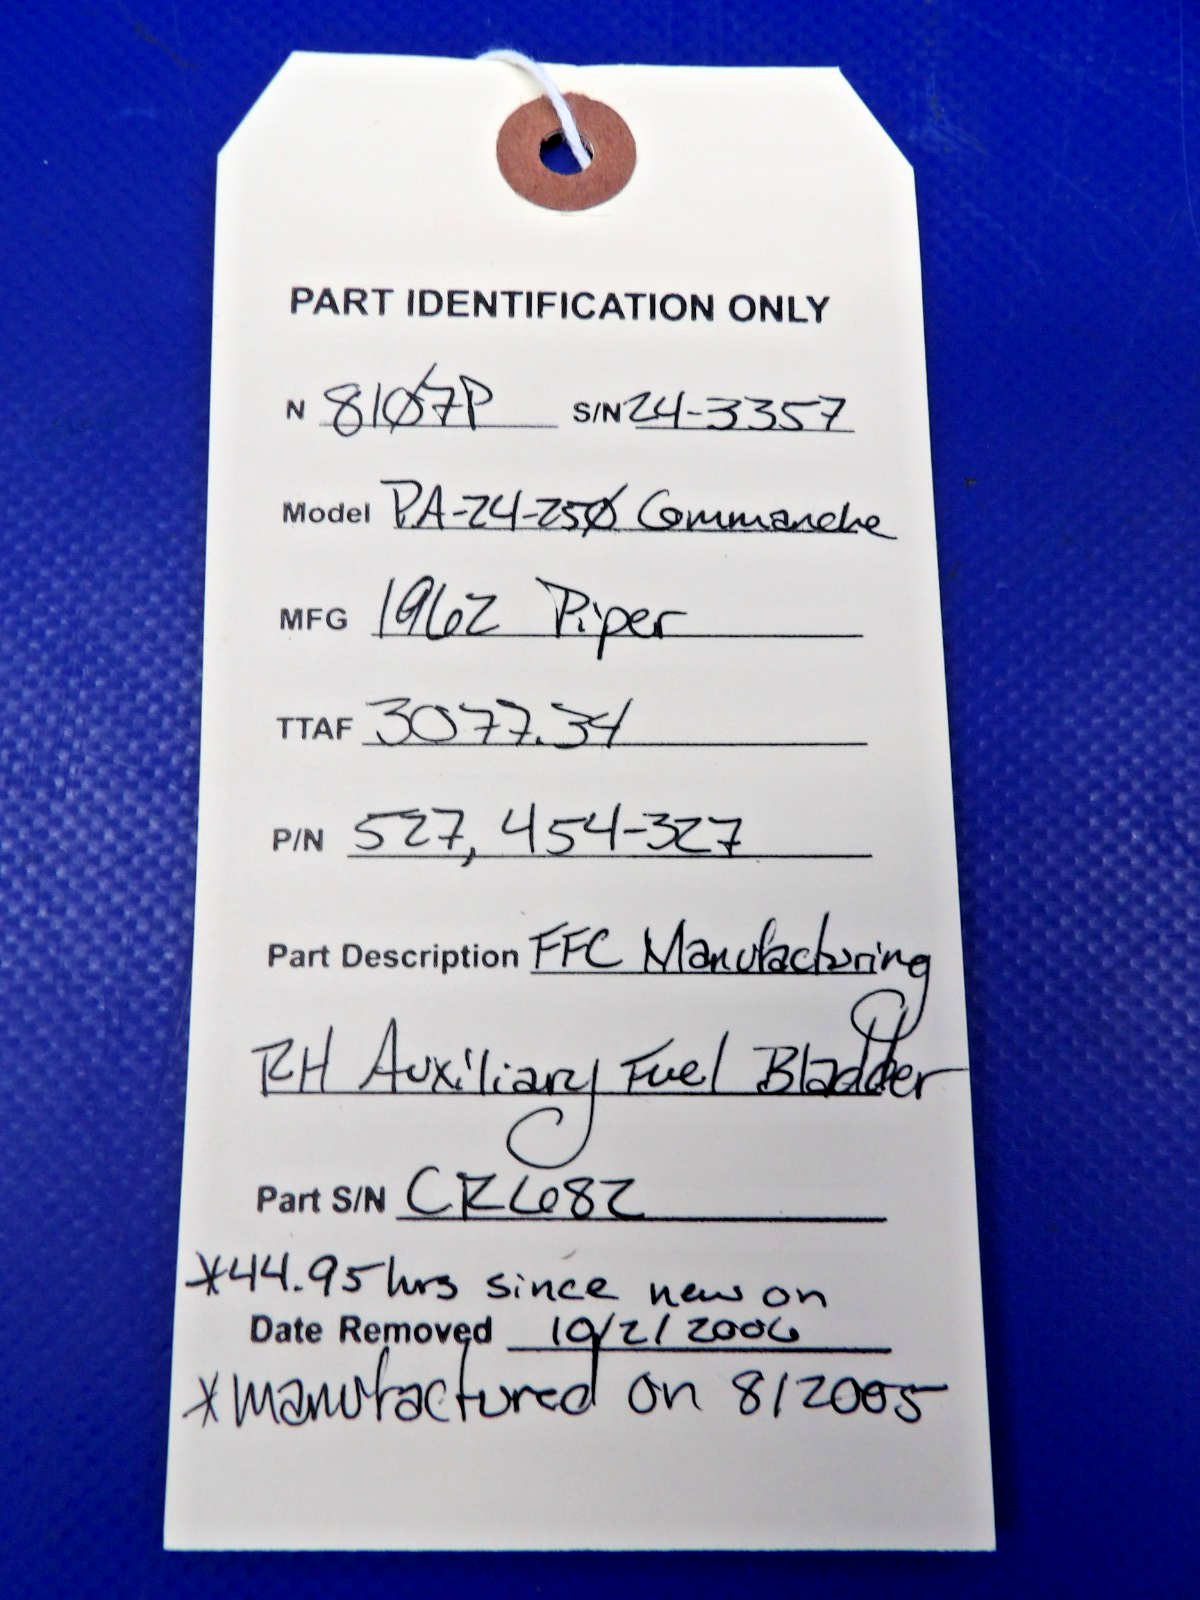 PART IDENTIFICATION ONLY
N 8107P S/N 24-3357
Model PA-24-250 Commanche
MFG 1962 Piper
TTAF 3077.34
P/N 527, 454-327
Part Description FFC Manufacturing
RH Auxiliary Fuel Bladder
Part S/N
*44.95 hrs since new on
Date Removed 10/2/2006
*manufactured on 8/2005